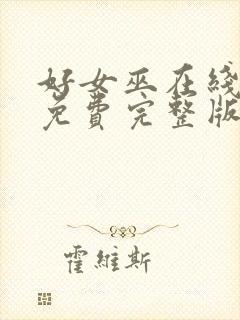 好女巫在线
免费完整版
霍维斯